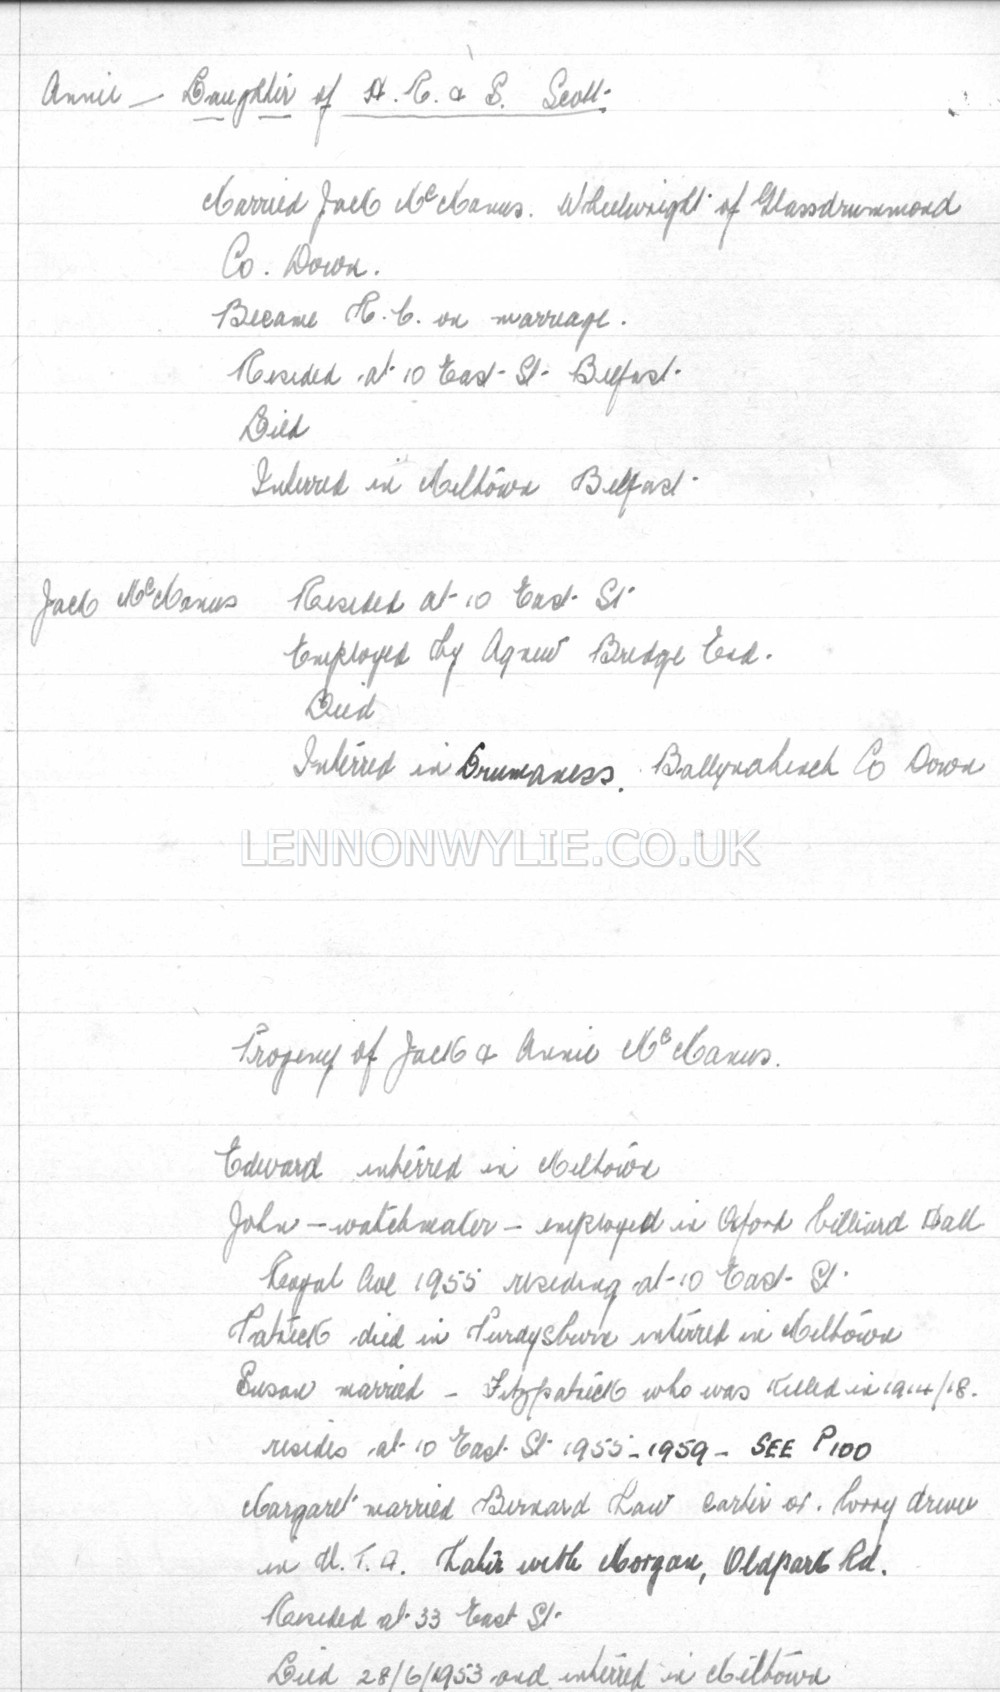 Annie — Daughter of H. C. & S. Scott.
Married Jack McManus. Wheelwright of Glassdrummond
Co. Down.
Became R. C. on marriage.
Resided at 10 East St. Belfast.
Died
Interred in Miltown Belfast.
Jack McManus Resided at 10 East St.
Employed by Agnew Bridge End.
Died
Interred in Drumaness. Ballynahinch Co Down
LENNONWYLIE.CO.UK
Progeny of Jack & Annie McManus.
Edward interred in Miltown
John - watchmaker - employed in Oxford billiard Hall
Royal Ave 1955 residing at 10 East St.
Patrick died in Purdysburn interred in Miltown
Susan married - Fitzpatrick who was killed in 1914/18.
resides at 10 East St 1955 - 1959 - SEE P100
Margaret married Bernard Law carter or lorry driver
in U. T. A. Later with Morgan, Oldpark Rd.
Resided at 33 East St.
Died 28/6/1953 and interred in Miltown